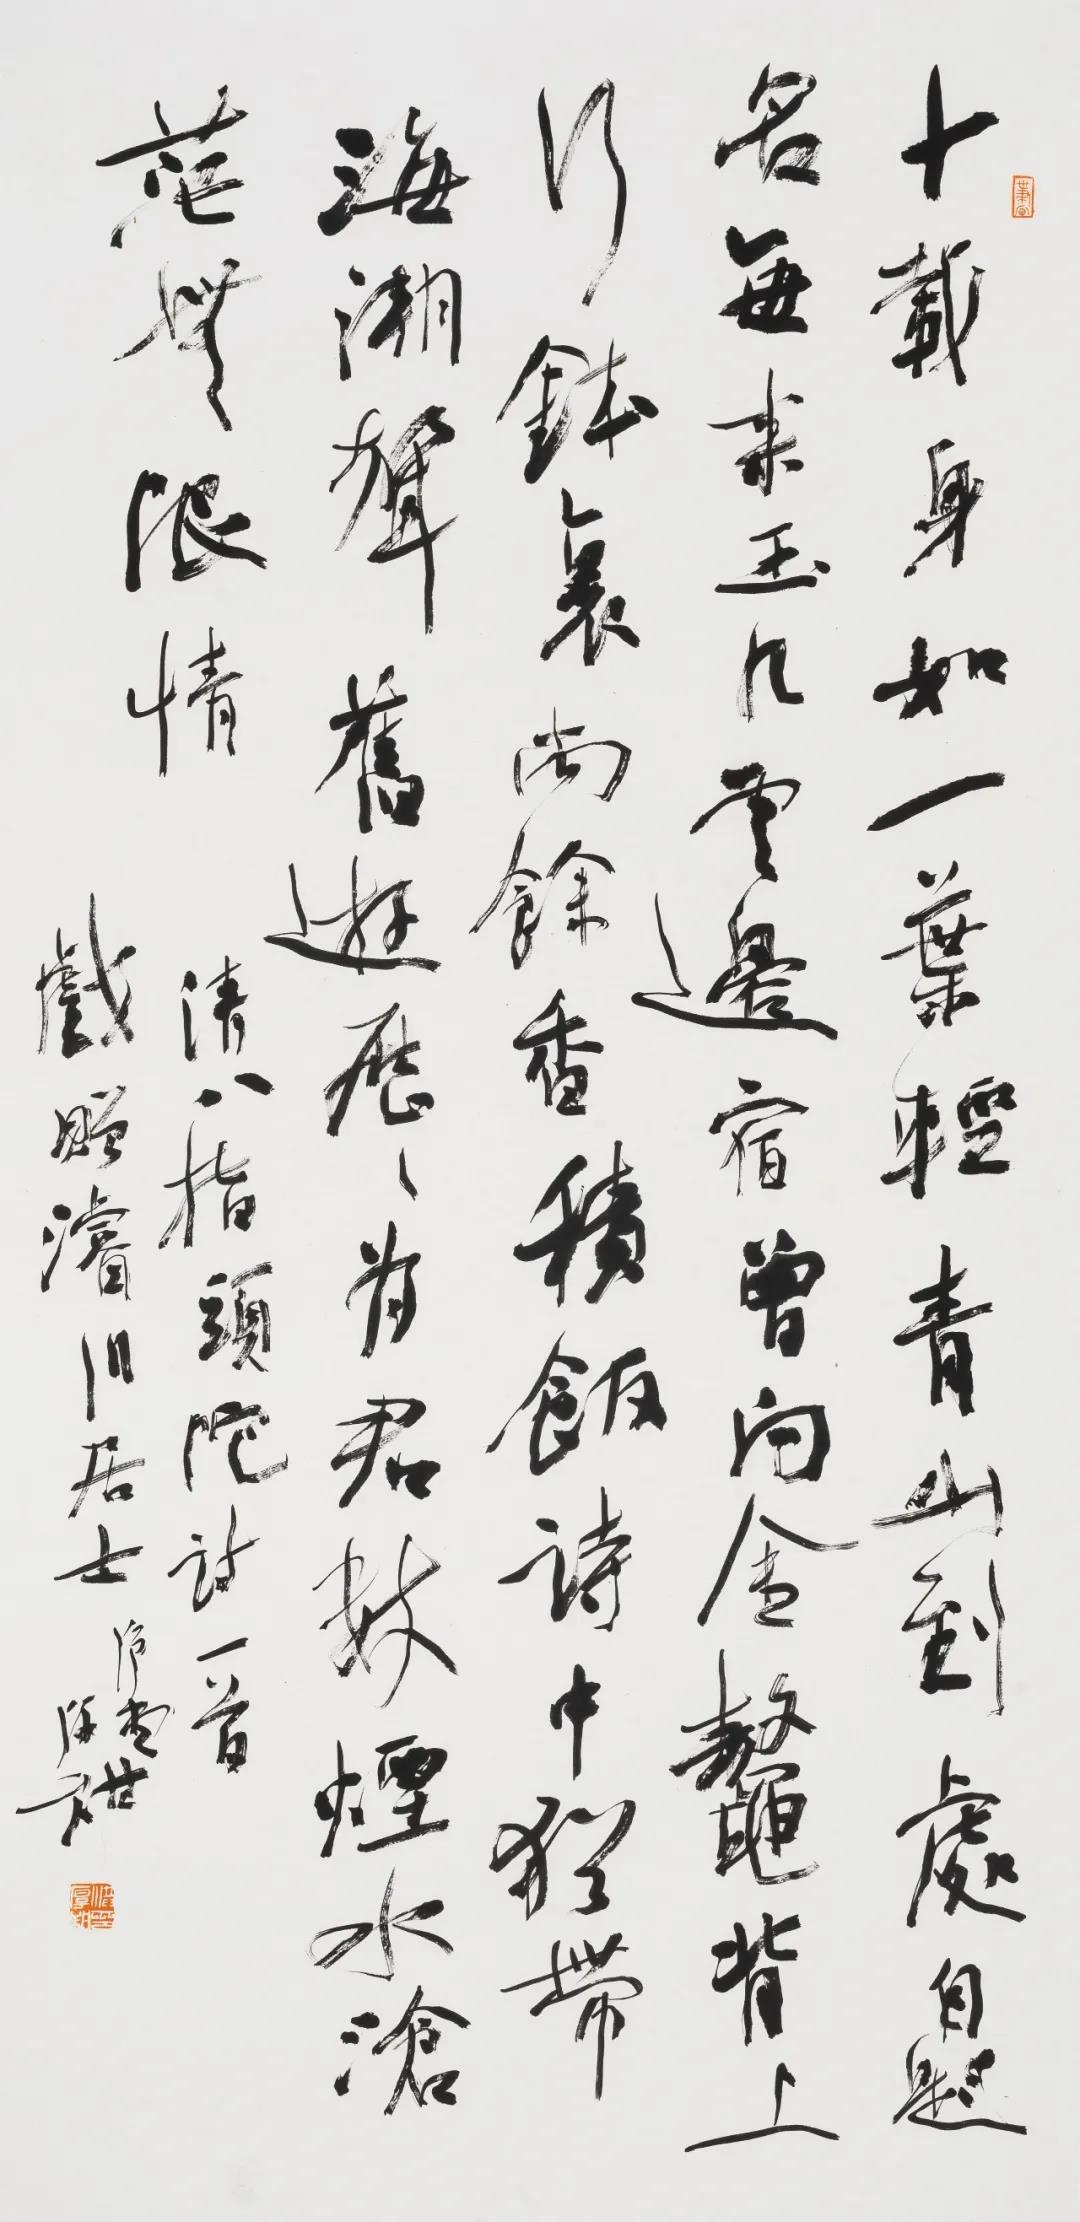 十載身如一葉輕青山到處自題
名每來玉几雲邊宿曾向金鼇背上
行鉢裏尚餘香積飯詩中猶帶
海潮聲舊遊歷〻為君數煙水滄
茫無限情
清八指頭陀詩一首
戲贈濬川居士